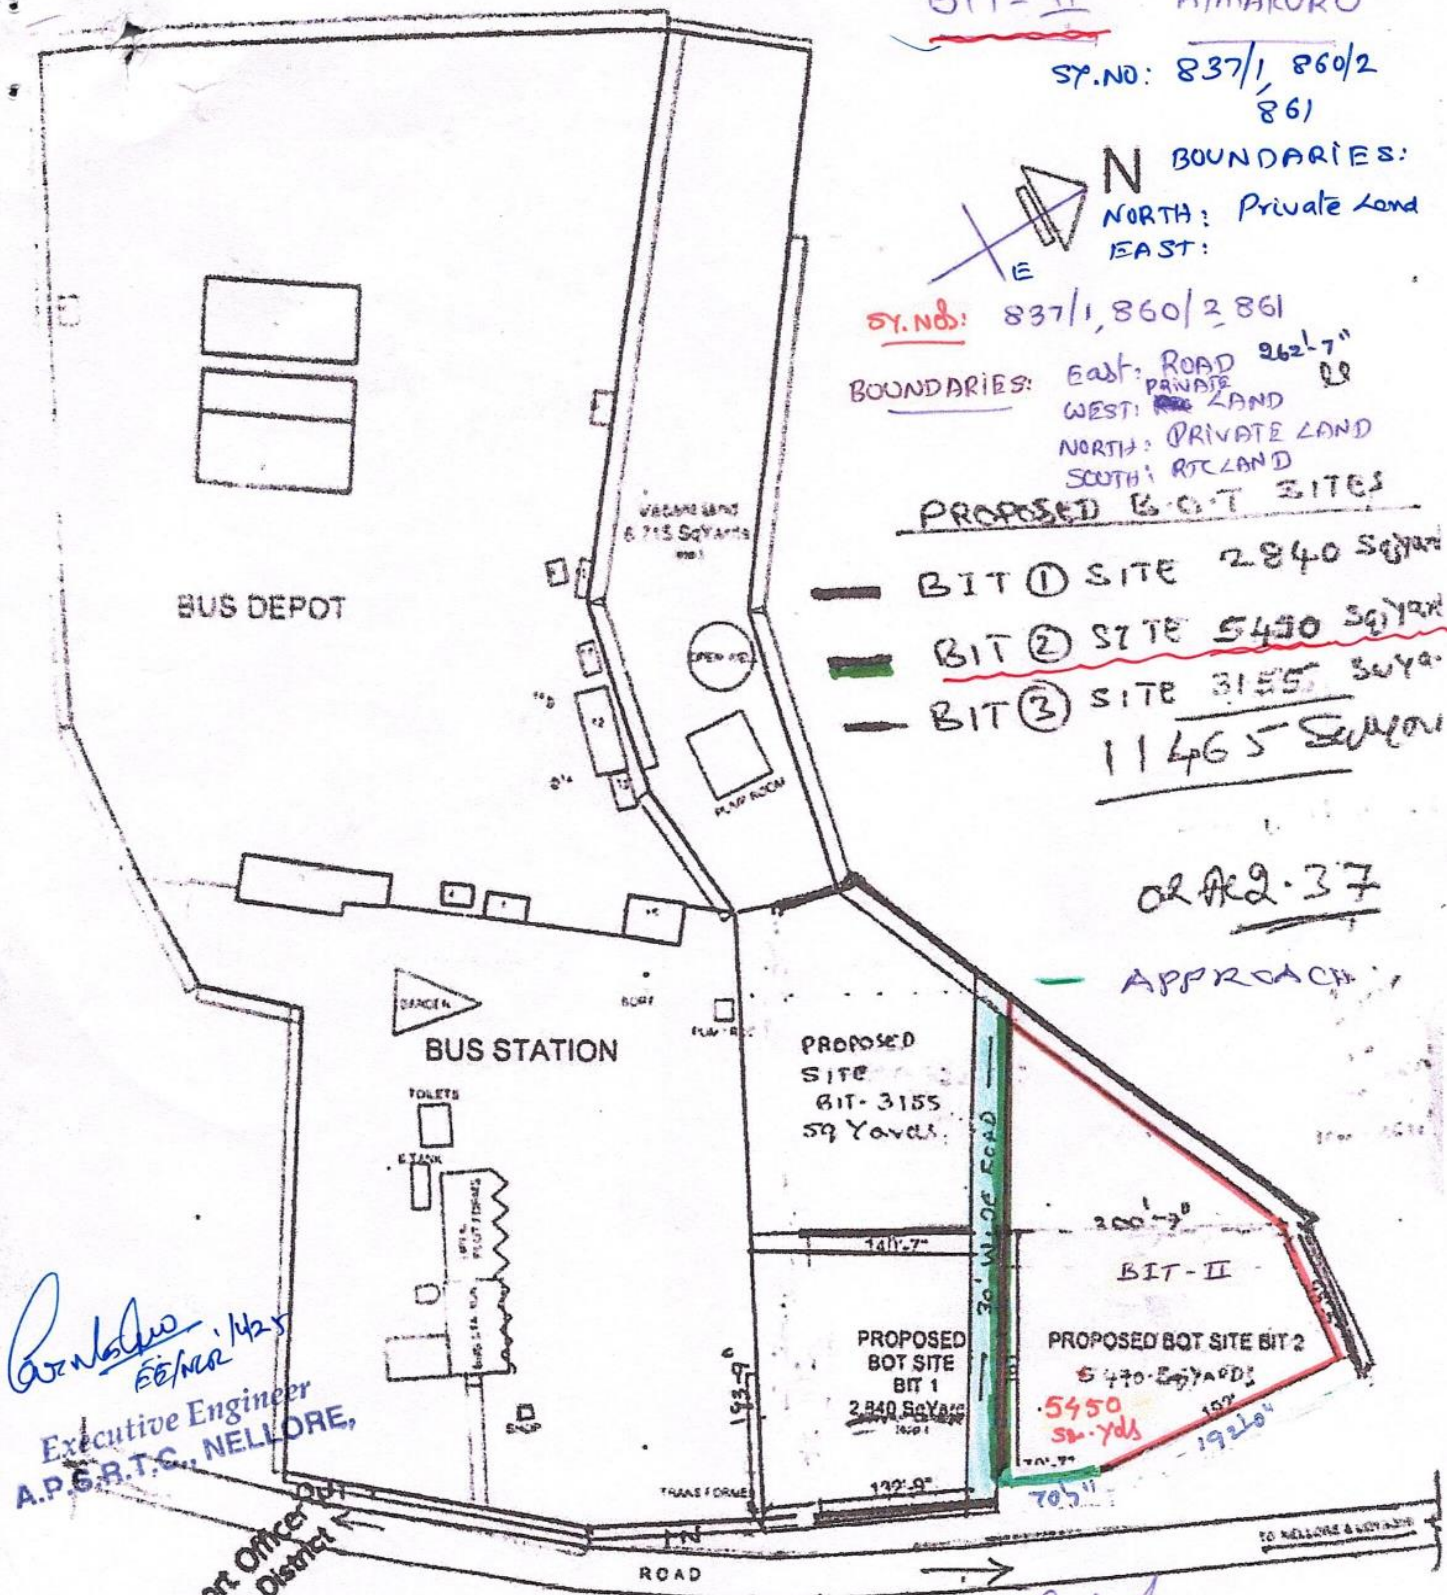 BIT-II ATMAKURU
SY.NO: 837/1, 860/2
861
N
E
BOUNDARIES:
NORTH: Private Land
EAST:
SY.NOS: 837/1, 860/2 861
BOUNDARIES:
East: ROAD 262'-7"
PRIVATE
WEST: LAND
NORTH: PRIVATE LAND
SOUTH: RTC LAND
PROPOSED B.O.T SITES
BIT ① SITE 2840 Sqyard
BIT ② SITE 5450 Sqyard
BIT ③ SITE 3155 SqYa
11465 Sqyar
or Ac 2.37
APPROACH
Vacant land
6,715 SqYards
BUS DEPOT
OPEN WELL
PUMP ROOM
GARDEN
BUS STATION
TOILETS
S.TANK
PROPOSED
SITE
BIT- 3155
sq Yards
30' WIDE ROAD
140'-7"
200'-7"
BIT-II
PROPOSED
BOT SITE
BIT 1
2,840 SqYards
PROPOSED BOT SITE BIT 2
5470 SqYARDS
5450
Sq.yds
193'-9"
192'-0"
70'-7"
70'7"
132'-9"
SHOP
TRANSFORME
OUT
IN
ROAD
TO NELLORE &
EE/NLR
Executive Engineer
A.P.S.R.T.C., NELLORE,
ort Officer
District